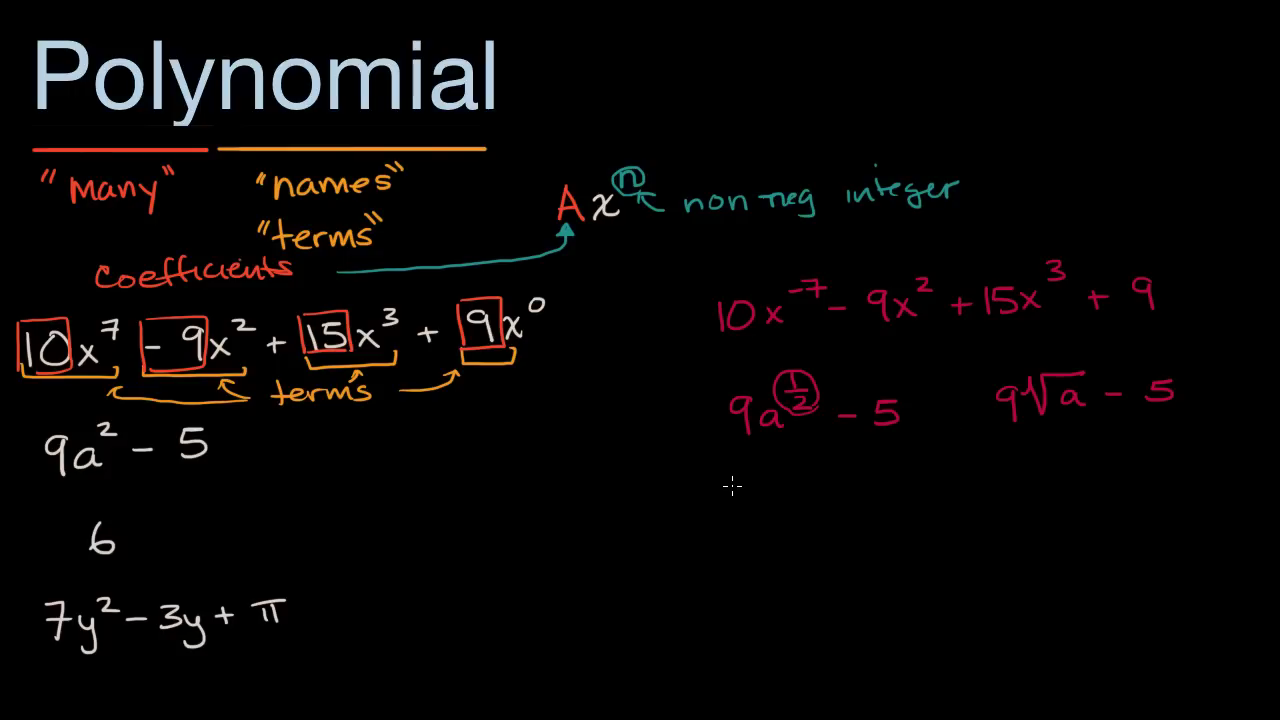 Polynomial
"many" "names"
"terms"
A xⁿ non neg integer
coefficients
10x⁷ - 9x² + 15x³ + 9x⁰
terms
9a² - 5
6
7y² - 3y + π
10x⁻⁷ - 9x² + 15x³ + 9
9a^(1/2) - 5 9√a - 5